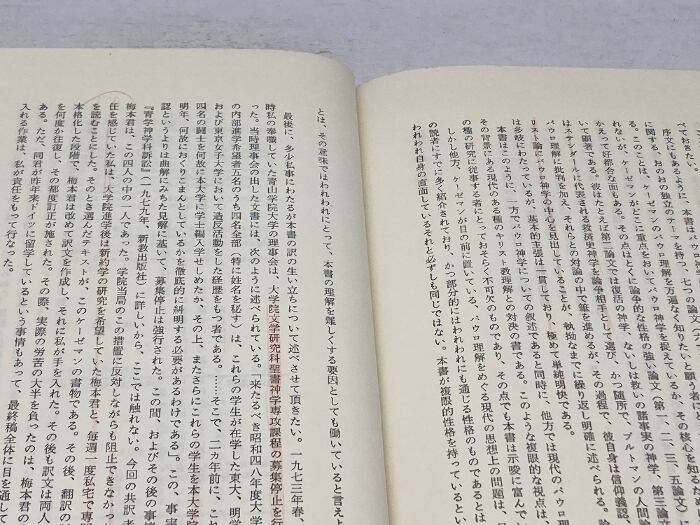 べておきたい。
序文にもあるように、本書はパウロ
に関する、おのおの独立のテーマを持つ、七つの論文
る。このことは、ケーゼマンのパウロ理解を万遍なく知りたいと願う者
れないが、ケーゼマンがどこに重点をおいてパウロ神学を捉えているか、その核心をよ
かえって好都合な面もある。その点はとくに論争的な性格の強い論文（第一、二、三、五論文）
いて顕著である。彼はたとえば第二論文では復活の神学、ないしは救いの諸事実の神学、第三論文
はステンダールに代表される救済史神学を論争相手として選び、かつ随所で、ブルトマンの人間
パウロ理解に批判を加え、それらとの対論の中で筆を進めるが、その過程で、彼自身は信仰義認
リスト論にパウロ神学の中心を見出していることが、執拗なまでに繰り返し明確に述べられる。
は多岐にわたっているが、基本的主張は一貫しており、極めて単純明快である。
本書はこのように、一方でパウロ神学についての叙述であると同時に、他方では現代のパウロ理解
その背景にある現代のある種のキリスト教理解との対決の書である。このような複眼的な視点は
の種の研究に従事する者にとっておそらく不可欠のものであり、その点でも本書は示唆に富んで
しかし他方、ケーゼマンが目の前に置いている、パウロ理解をめぐる現代の思想上の問題は、
の読者にすでに多く紹介されており、かつ部分的にはわれわれにも通じる性格のものであるとは
われわれ自身の直面しているそれと必ずしも同じではない。本書が複眼的性格を持っているとい
とは、その意味ではわれわれにとって、本書の理解を難しくする要因としても働いていると言えよ
最後に、多少私事にわたるが本書の訳の生い立ちについて述べさせて頂きたい。一九七三年春、
時私の奉職していた青山学院大学の理事会は、大学院文学研究科聖書神学専攻課程の募集停止を行
った。当時理事会の出した文書には、次のように述べられている。「来たるべき昭和四八年度大学
の内部進学希望者五名のうち四名全部（特に姓名を秘す）は、これらの学生が在学した東大、明学
および東京女子大学において造反活動をした経歴をもつ者である。……そこで、二ヵ年前に、これ
四名の闘士を何故に本大学に学士編入学せしめたか、その上、またさらにこれらの学生を本大学院
明年、何故におくりこまんとしているかを徹底的に糾明する必要があるわけである」。この、事実
認というよりは曲解にみちた見解に基いて、募集停止は強行された。この間、およびその後の事情
『青学神学科訴訟』（一九七九年、新教出版社）に詳しいから、ここでは触れない。今回の共訳者
梅本君は、この四人の中の一人であった。学院当局のこの措置に反対しながらも阻止できなかっ
任を感じていた私は、大学院進学後は新約学の研究を希望していた梅本君と、毎週一度私宅で専
を読むことにした。そのとき選んだテキストが、このケーゼマンの書物である。その後、翻訳の
本格化した段階で、梅本君は改めて訳文を作成し、それに私が手を入れた。その後も訳文は両人
を何度か往復し、その都度訂正が施された。その際、実際の労苦の大半を負ったのは、梅本君の
ある。ただ、同君が昨年来ドイツに留学しているという事情もあって、最終稿全体に目を通して
入れる作業は、私が責任をもって行なった。